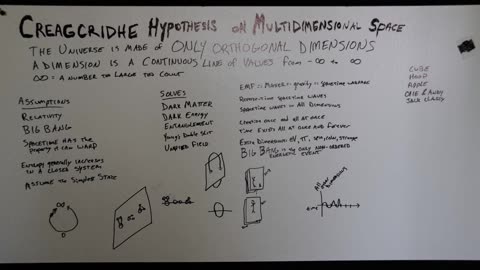 CREAGCRIDHE HYPOTHESIS ON MULTIDIMENSIONAL SPACE
THE UNIVERSE IS MADE OF ONLY ORTHOGONAL DIMENSIONS
A DIMENSION IS A CONTINUOUS LINE OF VALUES FROM -∞ TO ∞
∞ = A NUMBER TO LARGE THE COUNT
ASSUMPTIONS
RELATIVITY
BIG BANG
SPACETIME HAS THE
PROPERTY IT CAN WARP
ENTROPY GENERALLY INCREASES
IN A CLOSED SYSTEM
ASSUME THE SIMPLEST STATE
SOLVES
DARK MATTER
DARK ENERGY
ENTANGLEMENT
YOUNG'S DOUBLE SLIT
UNIFIED FIELD
EMF = MATTER = GRAVITY = SPACETIME WARPAGE
SPACETIME WAVES
SPACETIME WAVES IN ALL DIMENSIONS
CREATION ONCE AND ALL AT ONCE
TIME EXISTS ALL AT ONCE AND FOREVER
EXTRA DIMENSIONS:
BIG BANG IS THE ONLY NON-ORDERED
EVENT
CUBE
HOOD
APPLE
JACK